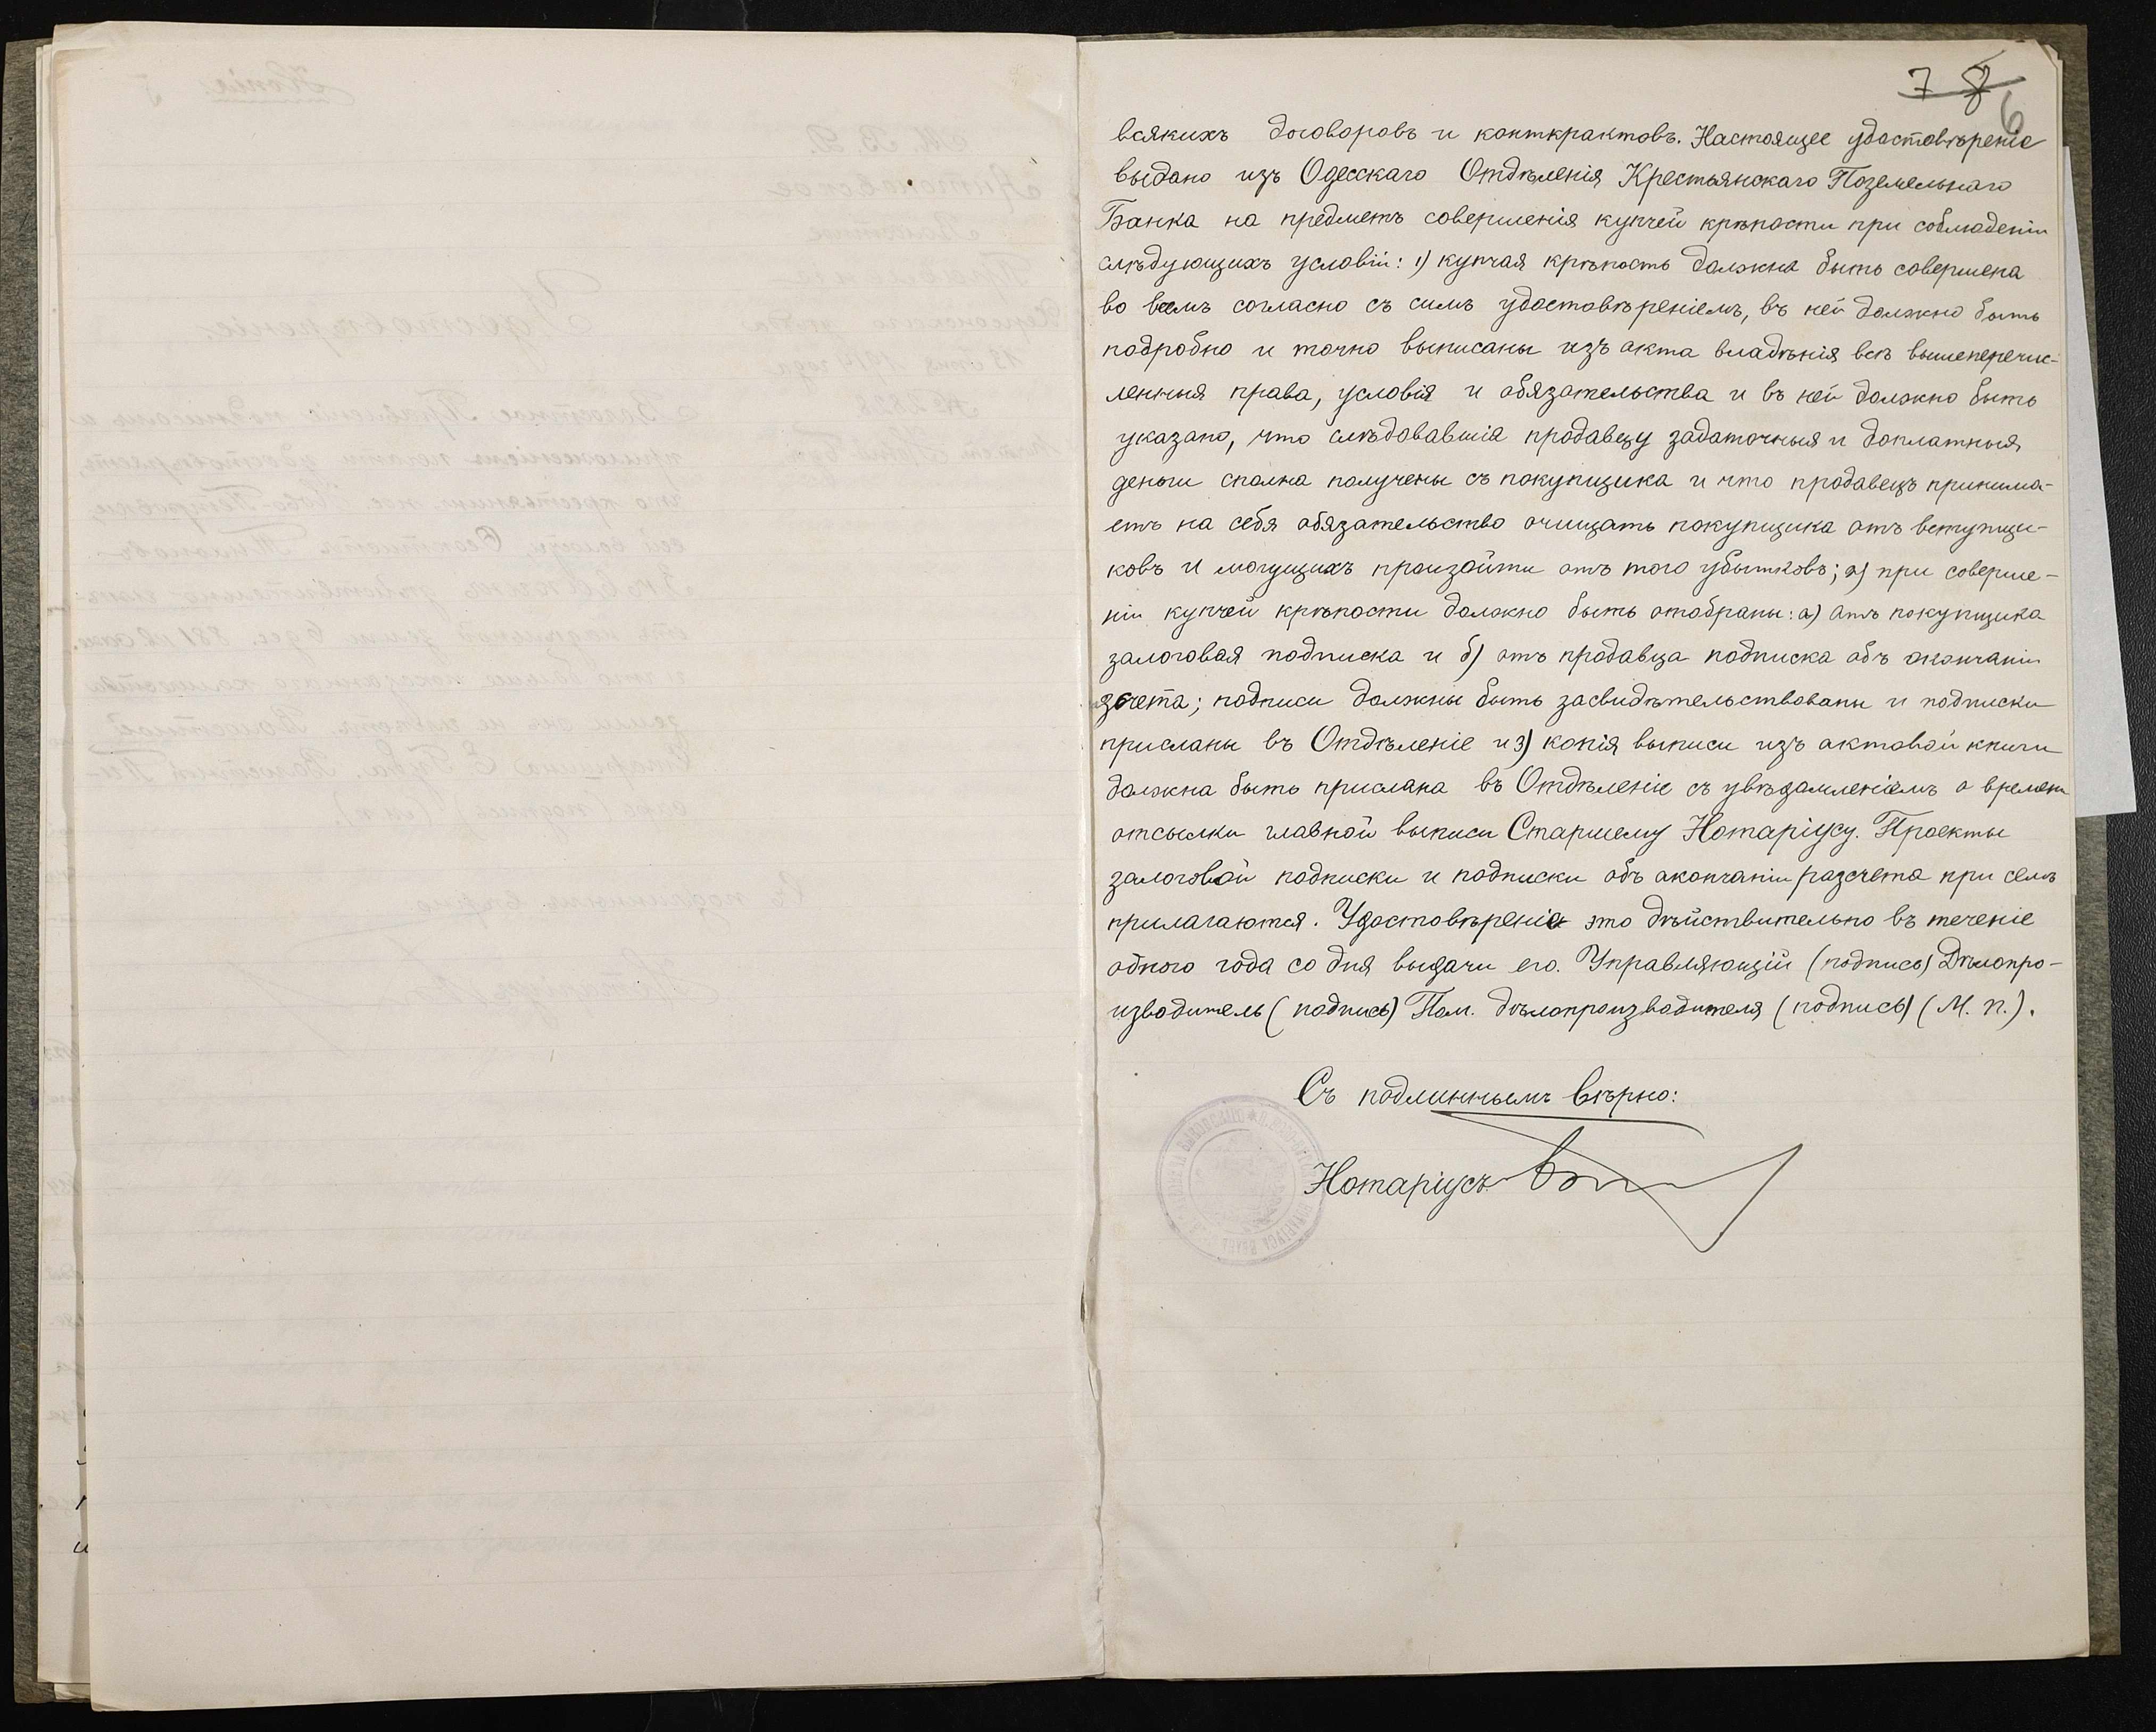 7 8
6
всякихъ договоровъ и контрактовъ. Настоящее удостовѣреніе
выдано изъ Одесскаго Отдѣленія Крестьянскаго Поземельнаго
Банка на предметъ совершенія купчей крѣпости при соблюденіи
слѣдующихъ условій: 1) купчая крѣпость должна быть совершена
во всемъ согласно съ симъ удостовѣреніемъ, въ ней должно быть
подробно и точно выписаны изъ акта владѣнія всѣ вышеперечис-
ленныя права, условія и обязательства и въ ней должно быть
указано, что слѣдовавшія продавцу задаточныя и доплатныя
деньги сполна получены съ покупщика и что продавецъ принима-
етъ на себя обязательство очищать покупщика отъ вступщи-
ковъ и могущихъ произойти отъ того убытковъ; 2) при соверше-
ніи купчей крѣпости должно быть отобраны: а) отъ покупщика
залоговая подписка и б) отъ продавца подписка объ окончаніи
зсчета; подписи должны быть засвидѣтельствованы и подписки
присланы въ Отдѣленіе и 3) копія выписи изъ актовой книги
должна быть прислана въ Отдѣленіе съ увѣдомленіемъ о времени
отсылки главной выписи Старшему Нотаріусу. Проекты
залоговой подписки и подписки объ окончаніи разсчета при семъ
прилагаются. Удостовѣреніе это дѣйствительно въ теченіе
одного года со дня выдачи его. Управляющій (подпись) Дѣлопро-
изводитель (подпись) Пом. дѣлопроизводителя (подпись) (М. п.).
Съ подлиннымъ вѣрно:
Нотаріусъ